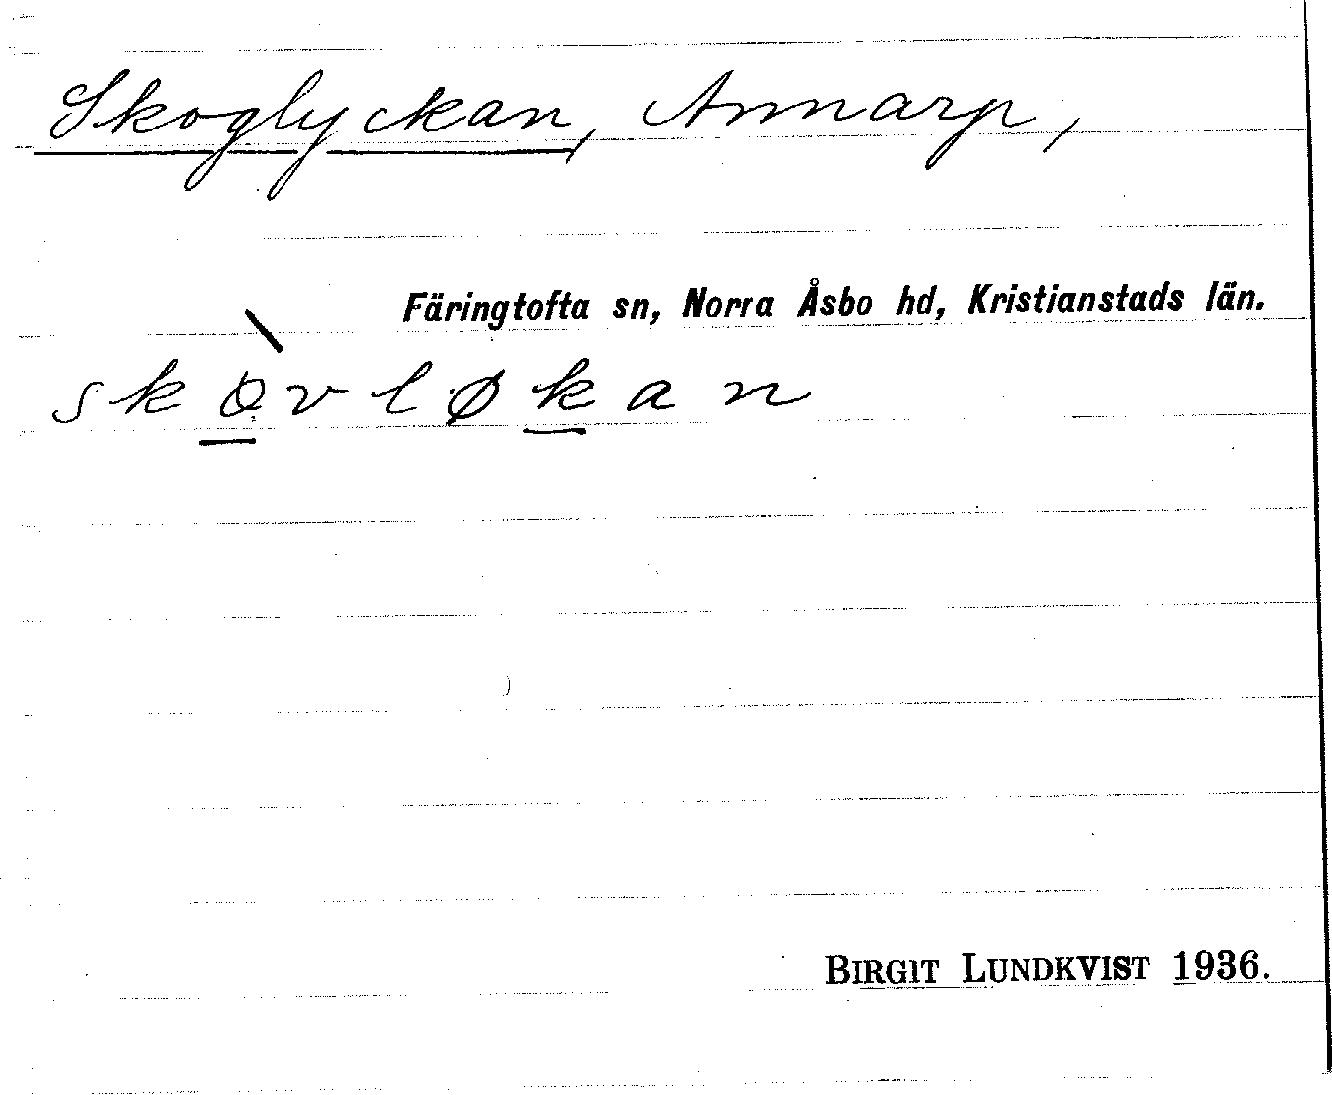 Skoglyckan, Annarp,
Färingtofta sn, Norra Åsbo hd, Kristianstads län.
skòvløkan
BIRGIT LUNDKVIST 1936.